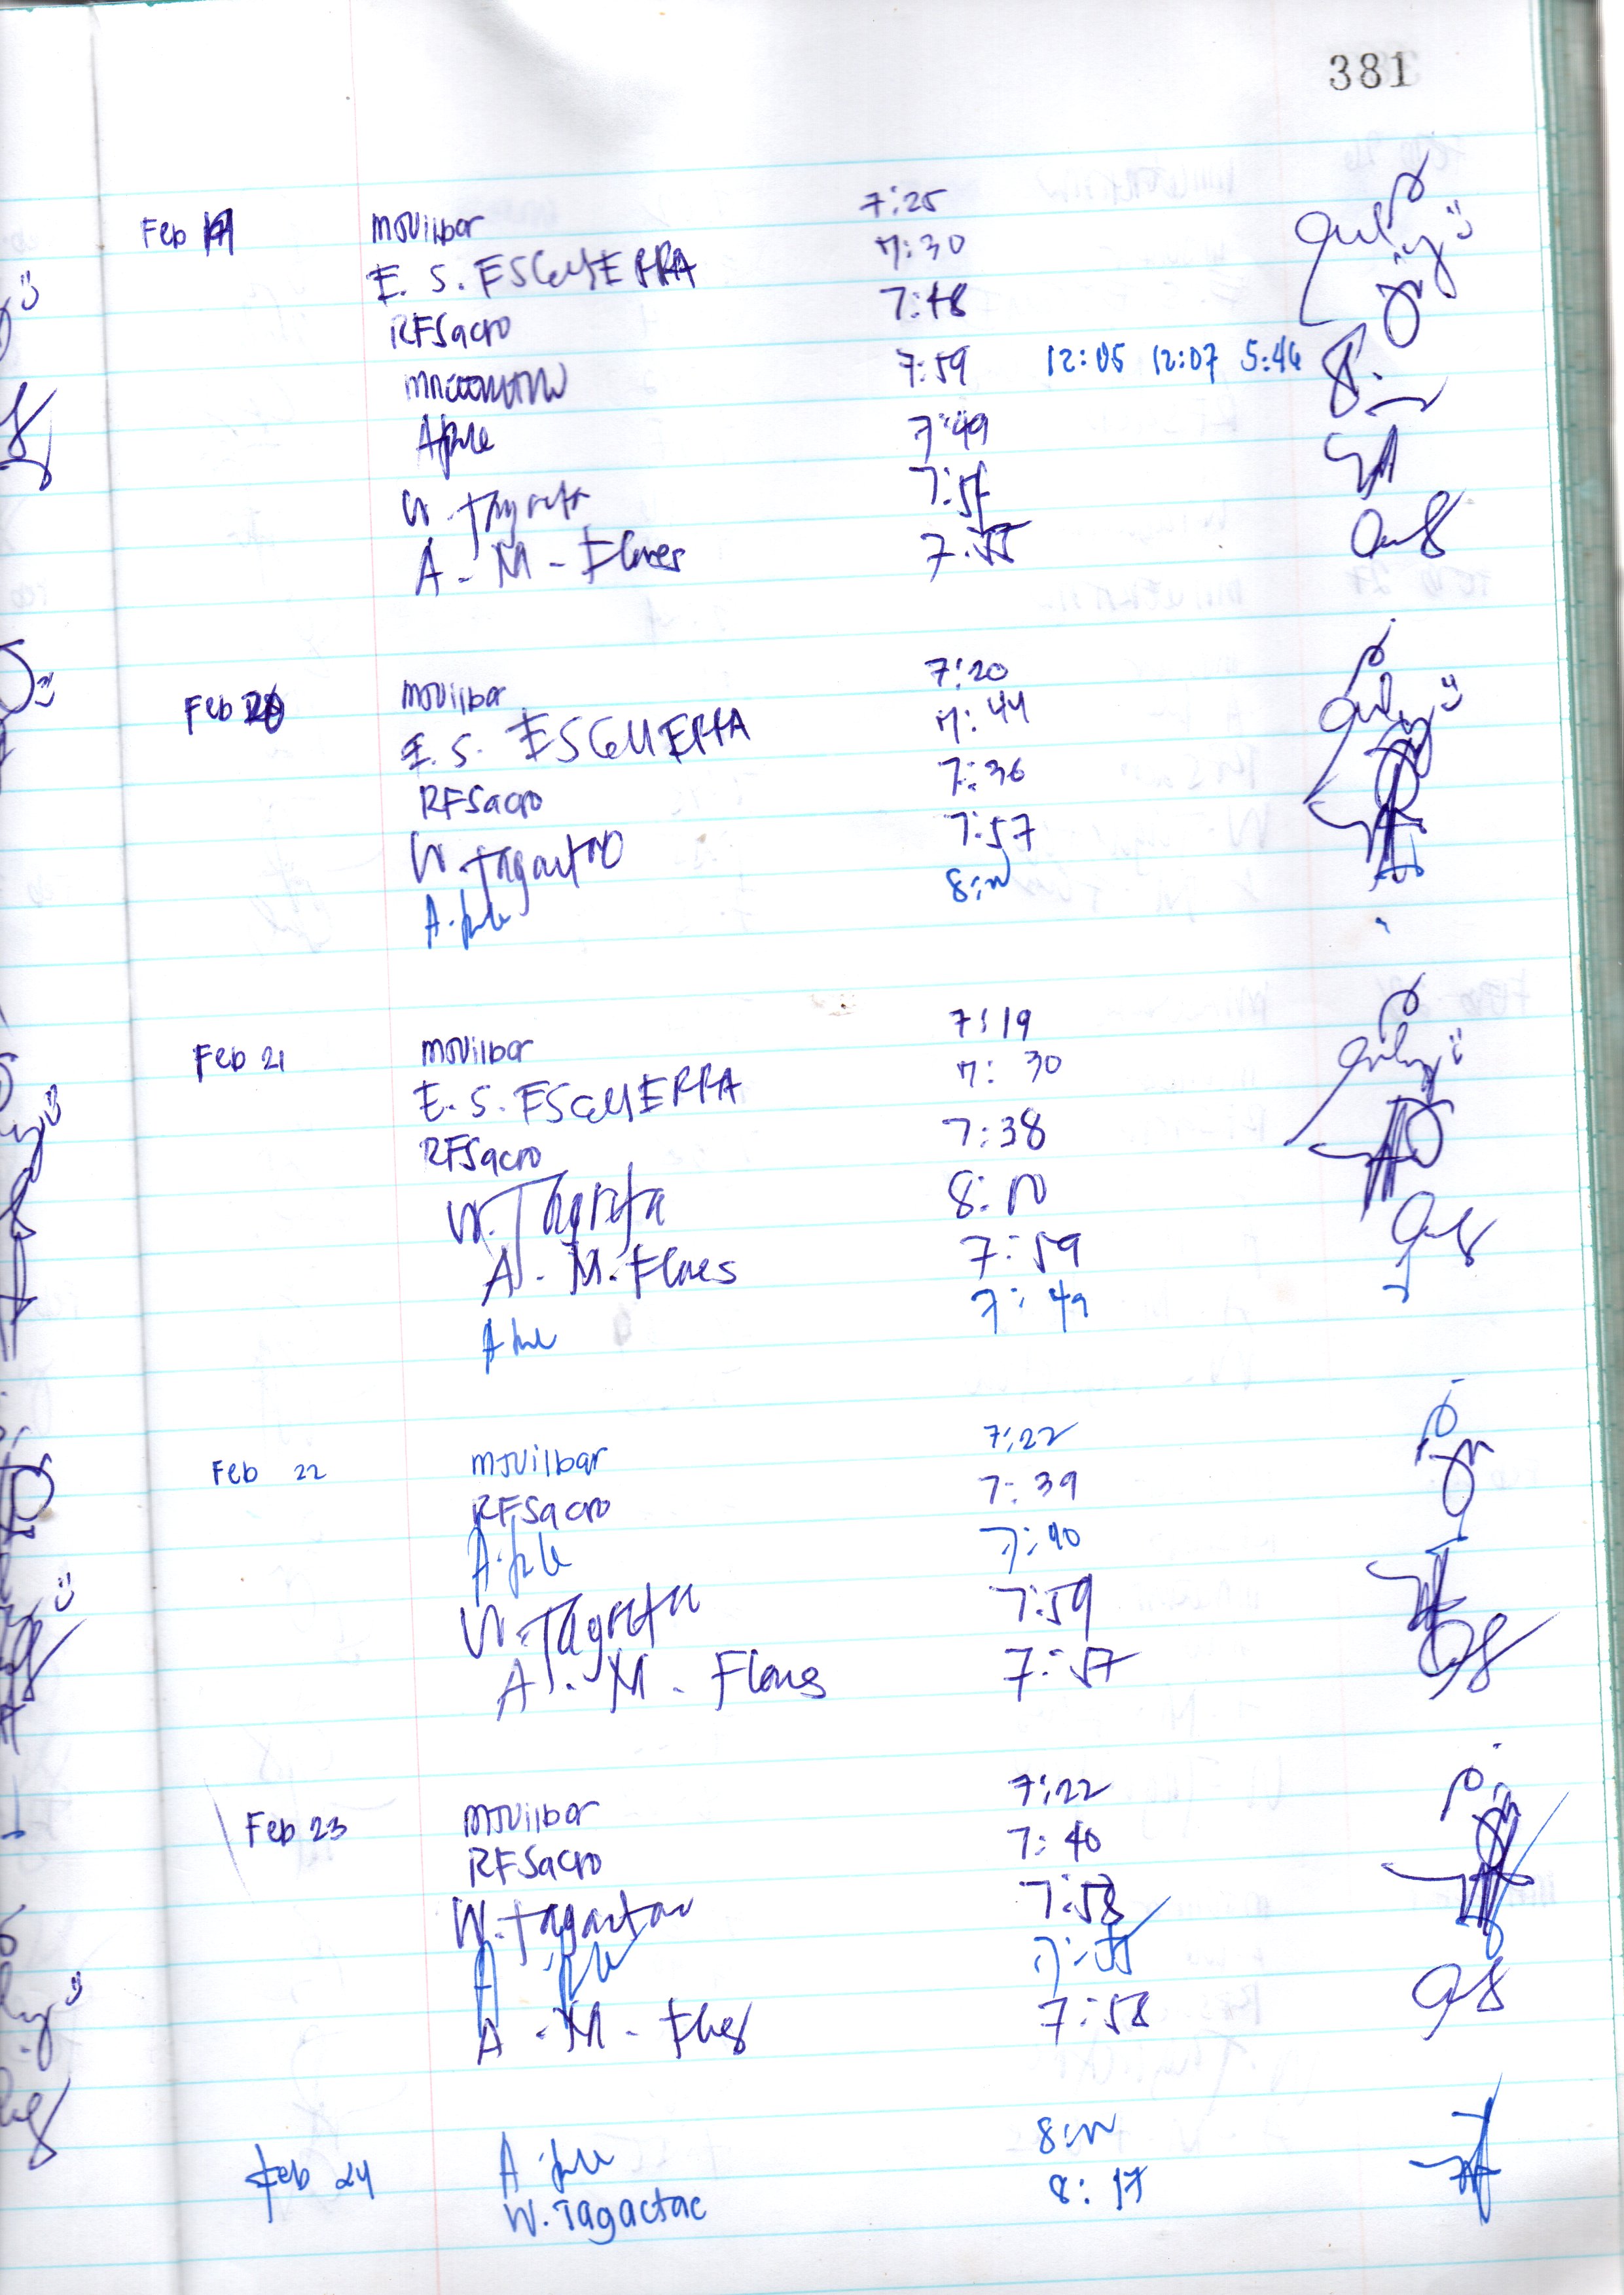 381
Feb 19 MJVilbar 7:25
E. S. ESGUERRA 7:30
RFSacro 7:48
7:59 12:05 12:07 5:46
7:49
W. 7:57
A. M. Flores 7:55
Feb 20 MJVilbar 7:20
E. S. ESGUERRA 7:44
RFSacro 7:36
W. Tagactac 7:57
A.
Feb 21 MJVilbar 7:19
E. S. ESGUERRA 7:30
RFSacro 7:38
W. Tagactac
A. M. Flores 7:59
7:49
Feb 22 MJVilbar 7:22
RFSacro 7:39
A. 7:40
W. Tagactac 7:59
A. M. Flores 7:57
Feb 23 MJVilbar 7:22
RFSacro 7:40
W. Tagactac 7:58
A. 7:55
A. M. Flores 7:58
Feb 24 A.
W. Tagactac 8:17